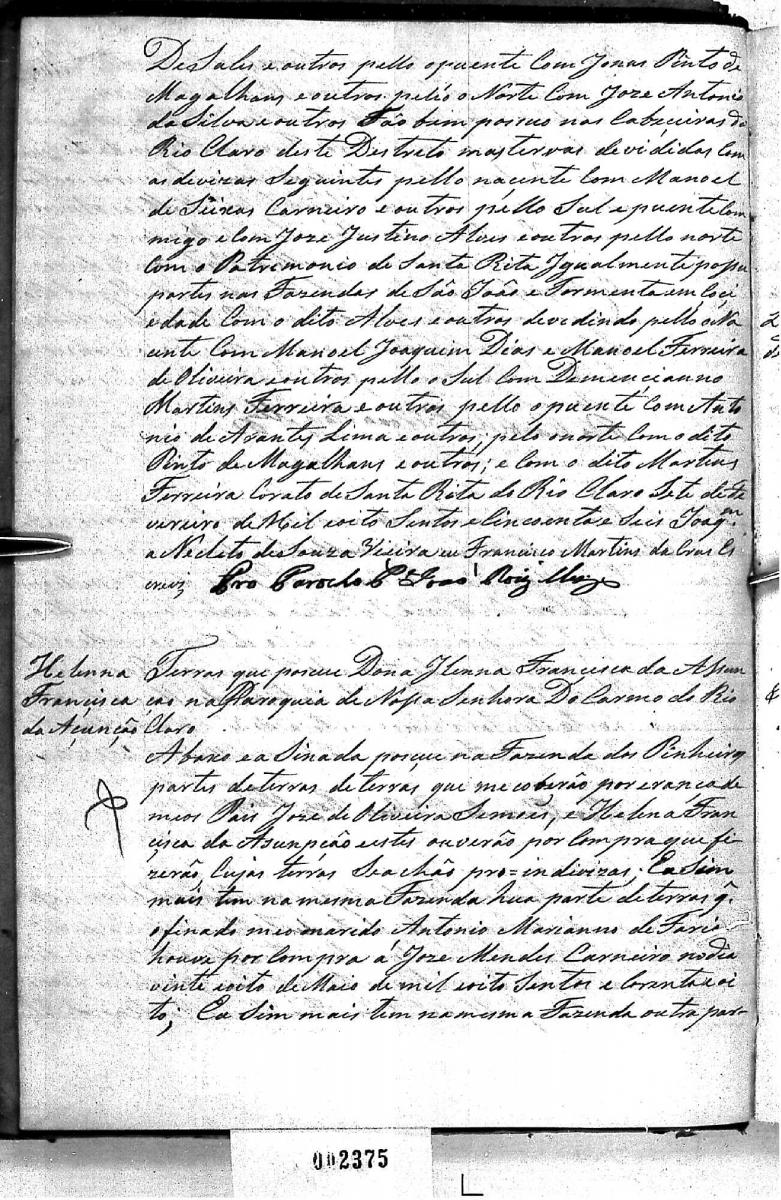 De Sales e outros pello o puente Com Jonas Pinto de
Magalhans e outros pello o Norte Com Joze Antonio
da Silva e outros Tão bem posuo nas Cabeceiras do
Rio Claro deste Destreto mas tervas devididas Com
as devizas Seguintes pello nacente Com Manoel
de Seixas Carneiro e outros pello Sul e puente Com
migo e Com Joze Justino Alves e outros pello norte
Com o Patremonio de Santa Rita Jgualmente possu
partes nas Fazendas de São João e Tormenta em Coci
edade Com o dito Alves e outros devedindo pello o Na
cente Com Manoel Joaquim Dias e Manoel Ferreira
de Oliveira e outros pello o Sul Com Demencianno
Martins Ferreira e outros pello o puente Com Anto
nio de Arantes Lima e outros; pelo o norte Com o dito
Pinto de Magalhans e outros; e Com o dito Martins
Ferreira Corato de Santa Rita do Rio Claro Sete de Fe
vereiro de Mil oito Sentos e Cincoenta e Seis Joaqm
a Necleto de Souza Vieira eu Francisco Martins da Cras Es
crevi Pro Parocho Pe João Roiz
Helenna
Francisca
da Açunção
Terras que posue Dona Jlenna Francisca da Assun
cao na Paroquia de Nossa Senhora Do Carmo do Rio
Claro
Abaxo e a Sinada posue na Fazenda dos Pinheiros
partes de terras de terras que me coberão por erança de
meos Pais Joze de Oliveira Semoes, e Helena Fran
cisca da Asunpção e estes ouverão por Compra que fi
zerão, Cujas terras Se achão pro=indivizas; Ea Sim
mais tem na mesma Fazenda hua parte de terras q.
o finado meo marido Antonio Marianno de Faria
houve por Compra á Joze Mendes Carneiro no dia
vinte oito de Maio de mil oito Sentos e Corenta e oi
to; Ea Sim mais tem na mesma Fazenda outra par-
002375